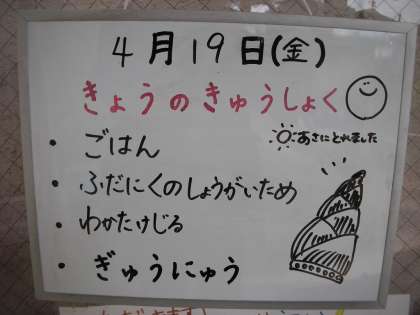 4月19日(金)
きょうのきゅうしょく
あさにとれました
・ごはん
・ふだにくのしょうがいため
・わかたけじる
・ぎゅうにゅう